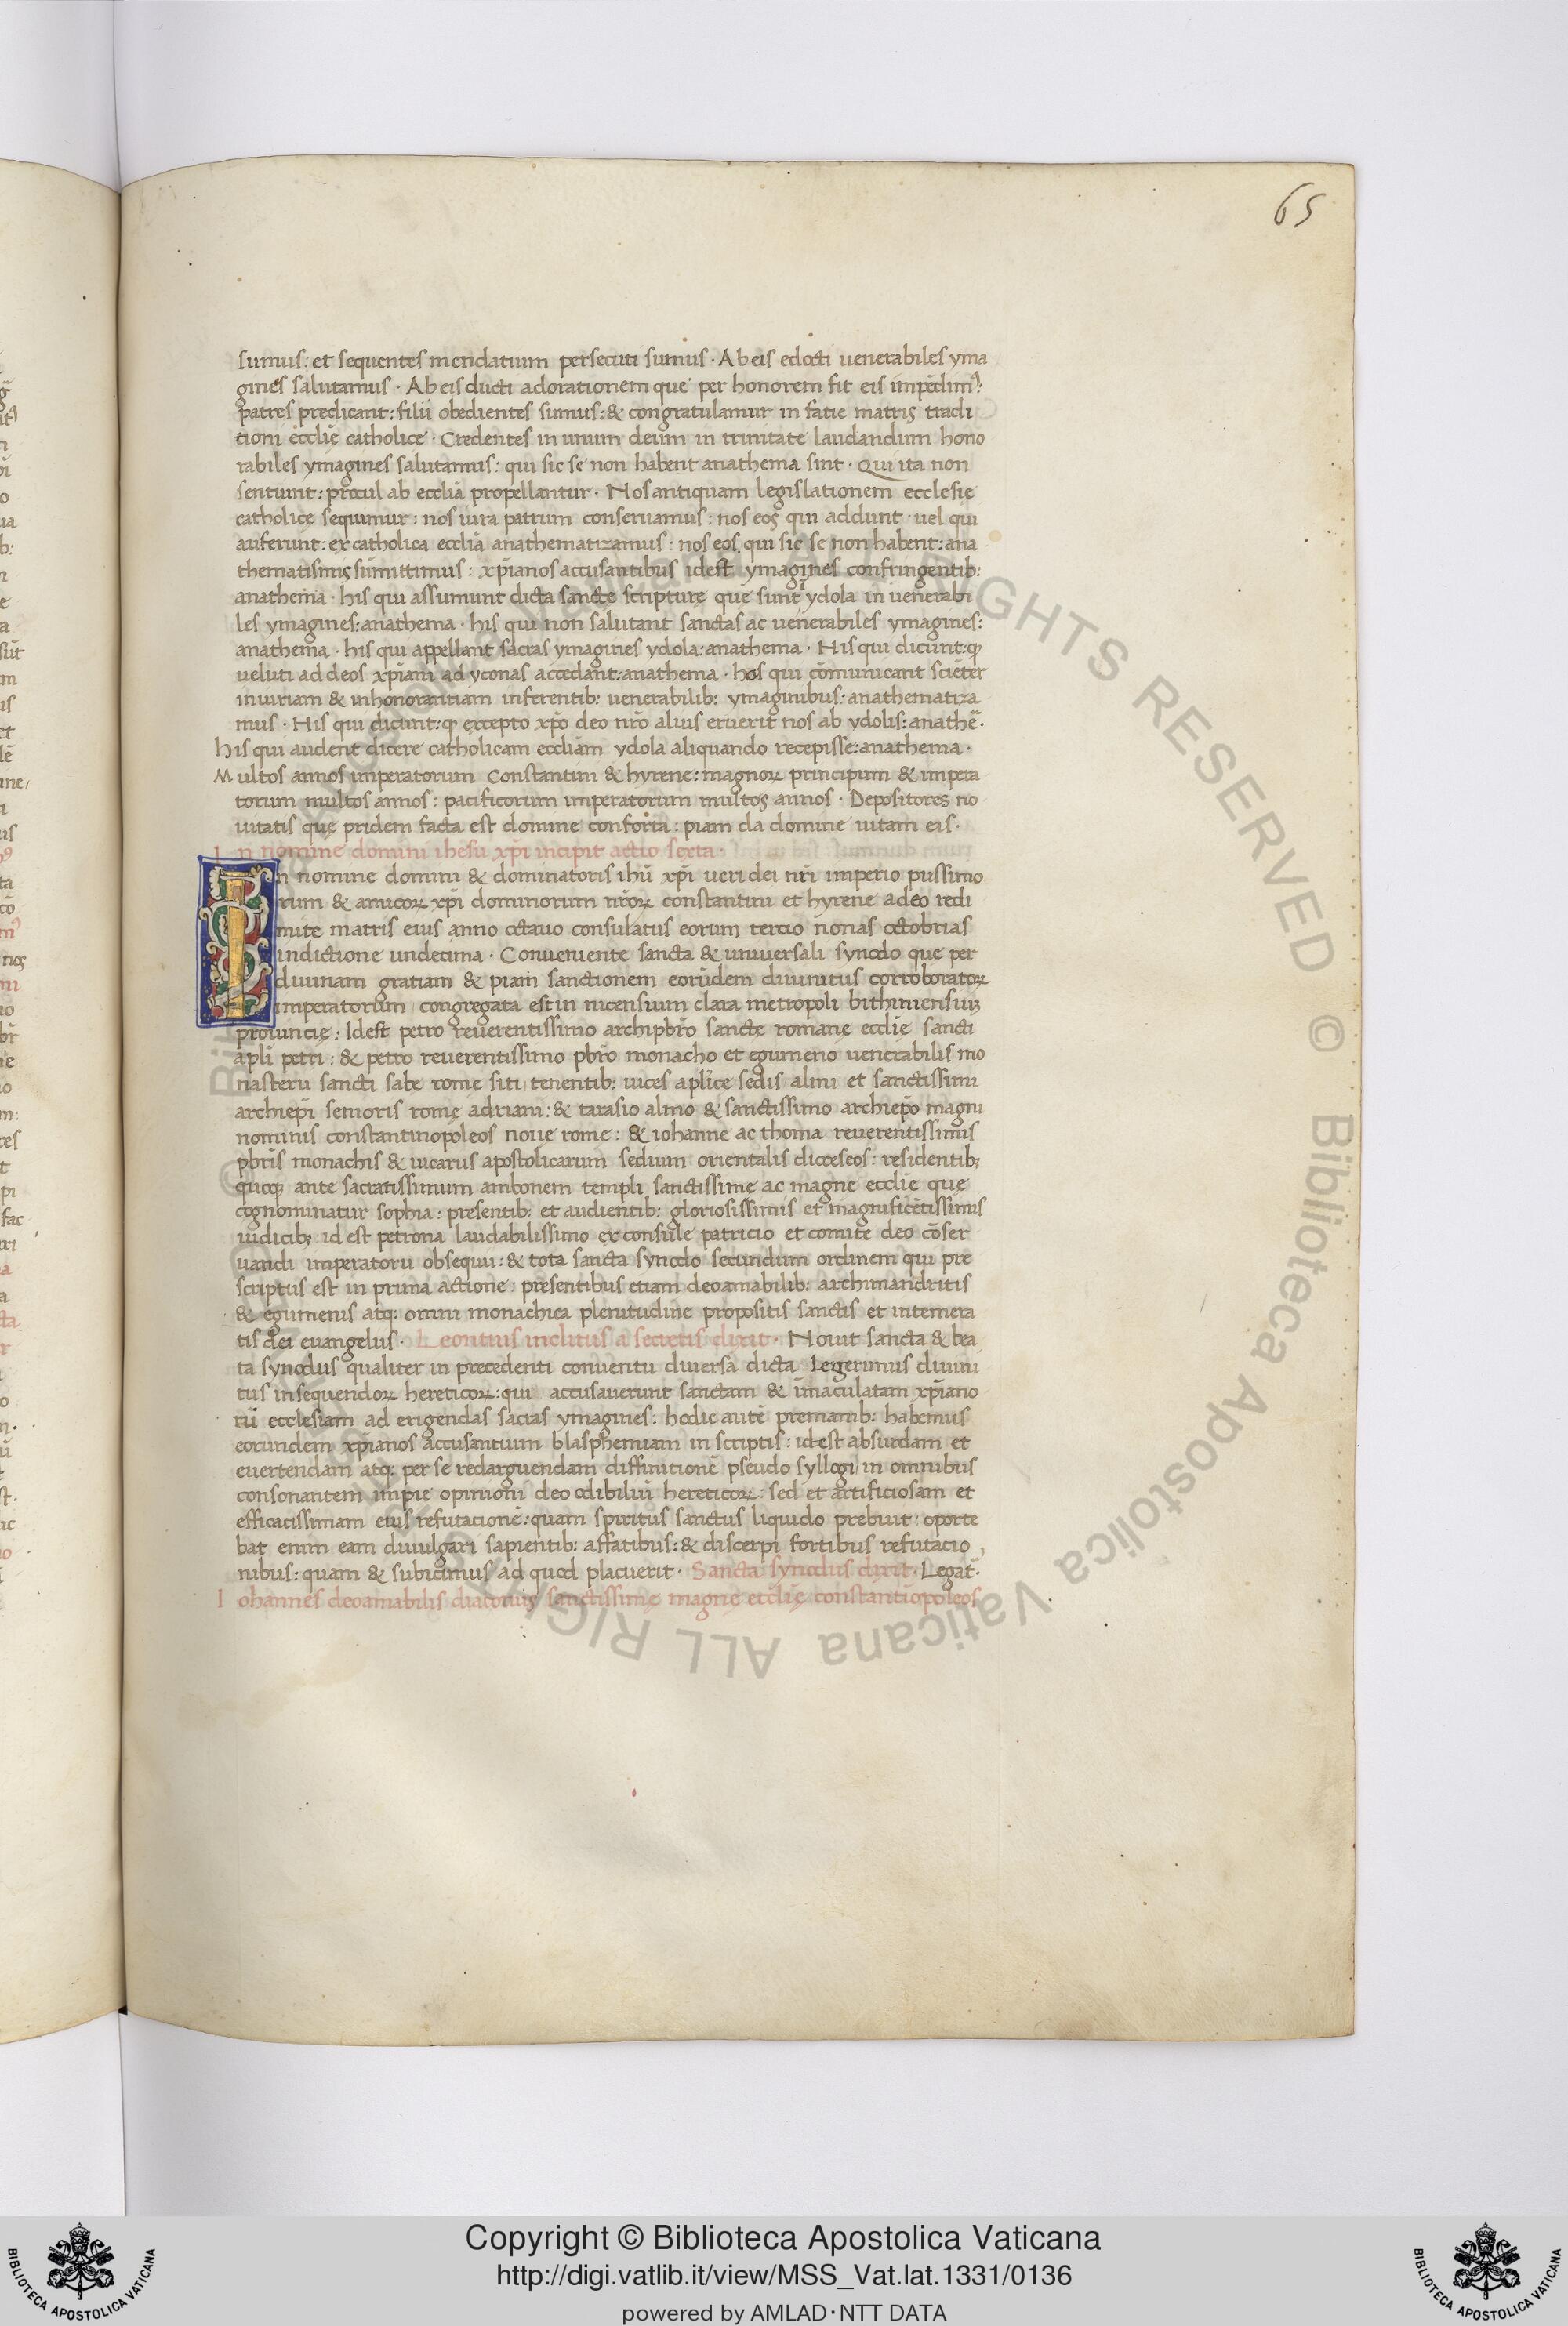 65
sumus: et sequentes mendatium persecuti sumus · Ab eis edocti uenerabiles yma
gines salutamus · Ab eis ducti adorationem que per honorem fit eis impẽdim᾽:
patres predicant: filii obedientes sumus: & congratulamur in fatie matris tradi
tioni eccl̃ię catholice · Credentes in unum deum in trinitate laudandum hono
rabiles ymagines salutamus: qui sic se non habent anathema sint · Qui ita non
sentiunt: procul ab eccl̃ia propellantur · Nos antiquam legislationem ecclesię
catholicę sequimur: nos iura patrum conseruamus: nos eos qui addunt · uel qui
auferunt: ex catholica eccl̃ia anathematizamus: nos eos qui sic se non habent: ana
thematismis sũmittimus: xp̃ianos accusantibus idest ymagines confringentib:
anathema · his qui assumunt dicta sanctę scripturę que sunt ydola in uenerabi
les ymagines: anathema · his qui non salutant sanctas ac uenerabiles ymagines:
anathema · his qui appellant sacras ymagines ydola: anathema · His qui dicunt: ꝙ
ueluti ad deos xp̃iani ad yconas accedant: anathema · hos qui cõmunicant sciẽter
iniuriam & inhonorantiam inferentib: uenerabilib: ymaginibus: anathematiza
mus · His qui dicunt: ꝙ excepto xp̃o deo nr̃o alius eruerit nos ab ydolis: anathẽ·
his qui audent dicere catholicam eccl̃iam ydola aliquando recepisse: anathema ·
Multos annos imperatorum Constantini & hyrene: magnoꝝ principum & impera
torum multos annos: pacificorum imperatorum multos annos · Depositores no
uitatis que pridem facta est domine conforta: piam da domine uitam eis·
In nomine domini ihesu xp̃i incipit actio sexta·
In nomine domini & dominatoris ihũ xp̃i ueri dei nr̃i imperio piissimo
rum & amicoꝝ xp̃i dominorum nr̃oꝝ constantini et hyrene a deo redi
mite matris eius anno octauo consulatus eorum tercio nonas octobrias
indictione undecima · Conueniente sancta & uniuersali synodo que per
diuinam gratiam & piam sanctionem eorũdem diuinitus corroboratoꝝ
imperatorum congregata est in nicensium clara metropoli bithiniensiuȝ
prouincię: Idest petro reuerentissimo archipbr̃o sanctę romanę eccl̃ię sancti
apl̃i petri: & petro reuerentissimo pbr̃o monacho et egumeno uenerabilis mo
nasterii sancti sabe romę siti tenentib: uices apl̃ice sedis almi et sanctissimi
archiep̃i senioris romę adriani: & tarasio almo & sanctissimo archiep̃o magni
nominis constantinopoleos noue rome: & iohanne ac thoma reuerentissimis
pbr̃is monachis & uicariis apostolicarum sedium orientalis dioceseos: residentibȝ
quoqȝ ante sacratissimum ambonem templi sanctissime ac magne eccl̃ie que
cognominatur sophia: presentib: et audientib: gloriosissimis et magnificẽtissimis
iudicibȝ id est petrona laudabilissimo ex consule patricio et comite deo cõser
uandi imperatorii obsequii: & tota sancta synodo secundum ordinem qui pre
scriptus est in prima actione: presentibus etiam deo amabilib: archimandritis
& egumenis atq: omni monachica plenitudine propositis sanctis et intemera
tis dei euangeliis · Leontius inclitus a secretis dixit · Nouit sancta & bea
ta synodus qualiter in precedenti conuentu diuersa dicta legerimus diuini
tus insequendoꝝ hereticoꝝ: qui accusauerunt sanctam & ĩmaculatam xp̃iano
rũ ecclesiam ad erigendas sacras ymagines: hodie autẽ premanib: habemus
eorundem xp̃ianos accusantium blasphemiam in scriptis: id est absurdam et
euertendam atq: per se redarguendam diffinitionẽ pseudo syllogi in omnibus
consonantem impie opinioni deo odibiliũ hereticoꝝ: sed et artificiosam et
efficacissimam eius refutacionẽ: quam spiritus sanctus liquido prebuit: oporte
bat enim eam diuulgari sapientib: affatibus: & discerpi fortibus refutacio
nibus: quam & subicimus ad quod placuerit · Sancta synodus dixit · Legat̃·
Iohannes deo amabilis diaconus sanctissimę magnę eccl̃ię constantiõpoleos
© Biblioteca Apostolica Vaticana ALL RIGHTS RESERVED © Biblioteca Apostolica Vaticana ALL RIGHTS
Copyright © Biblioteca Apostolica Vaticana
http://digi.vatlib.it/view/MSS_Vat.lat.1331/0136
powered by AMLAD·NTT DATA
BIBLIOTECA APOSTOLICA VATICANA
BIBLIOTECA APOSTOLICA VATICANA